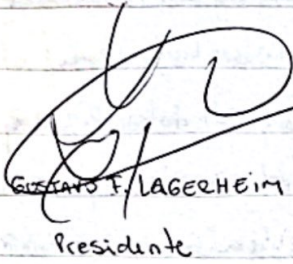 GUSTAVO F. LAGERHEIM
Presidente